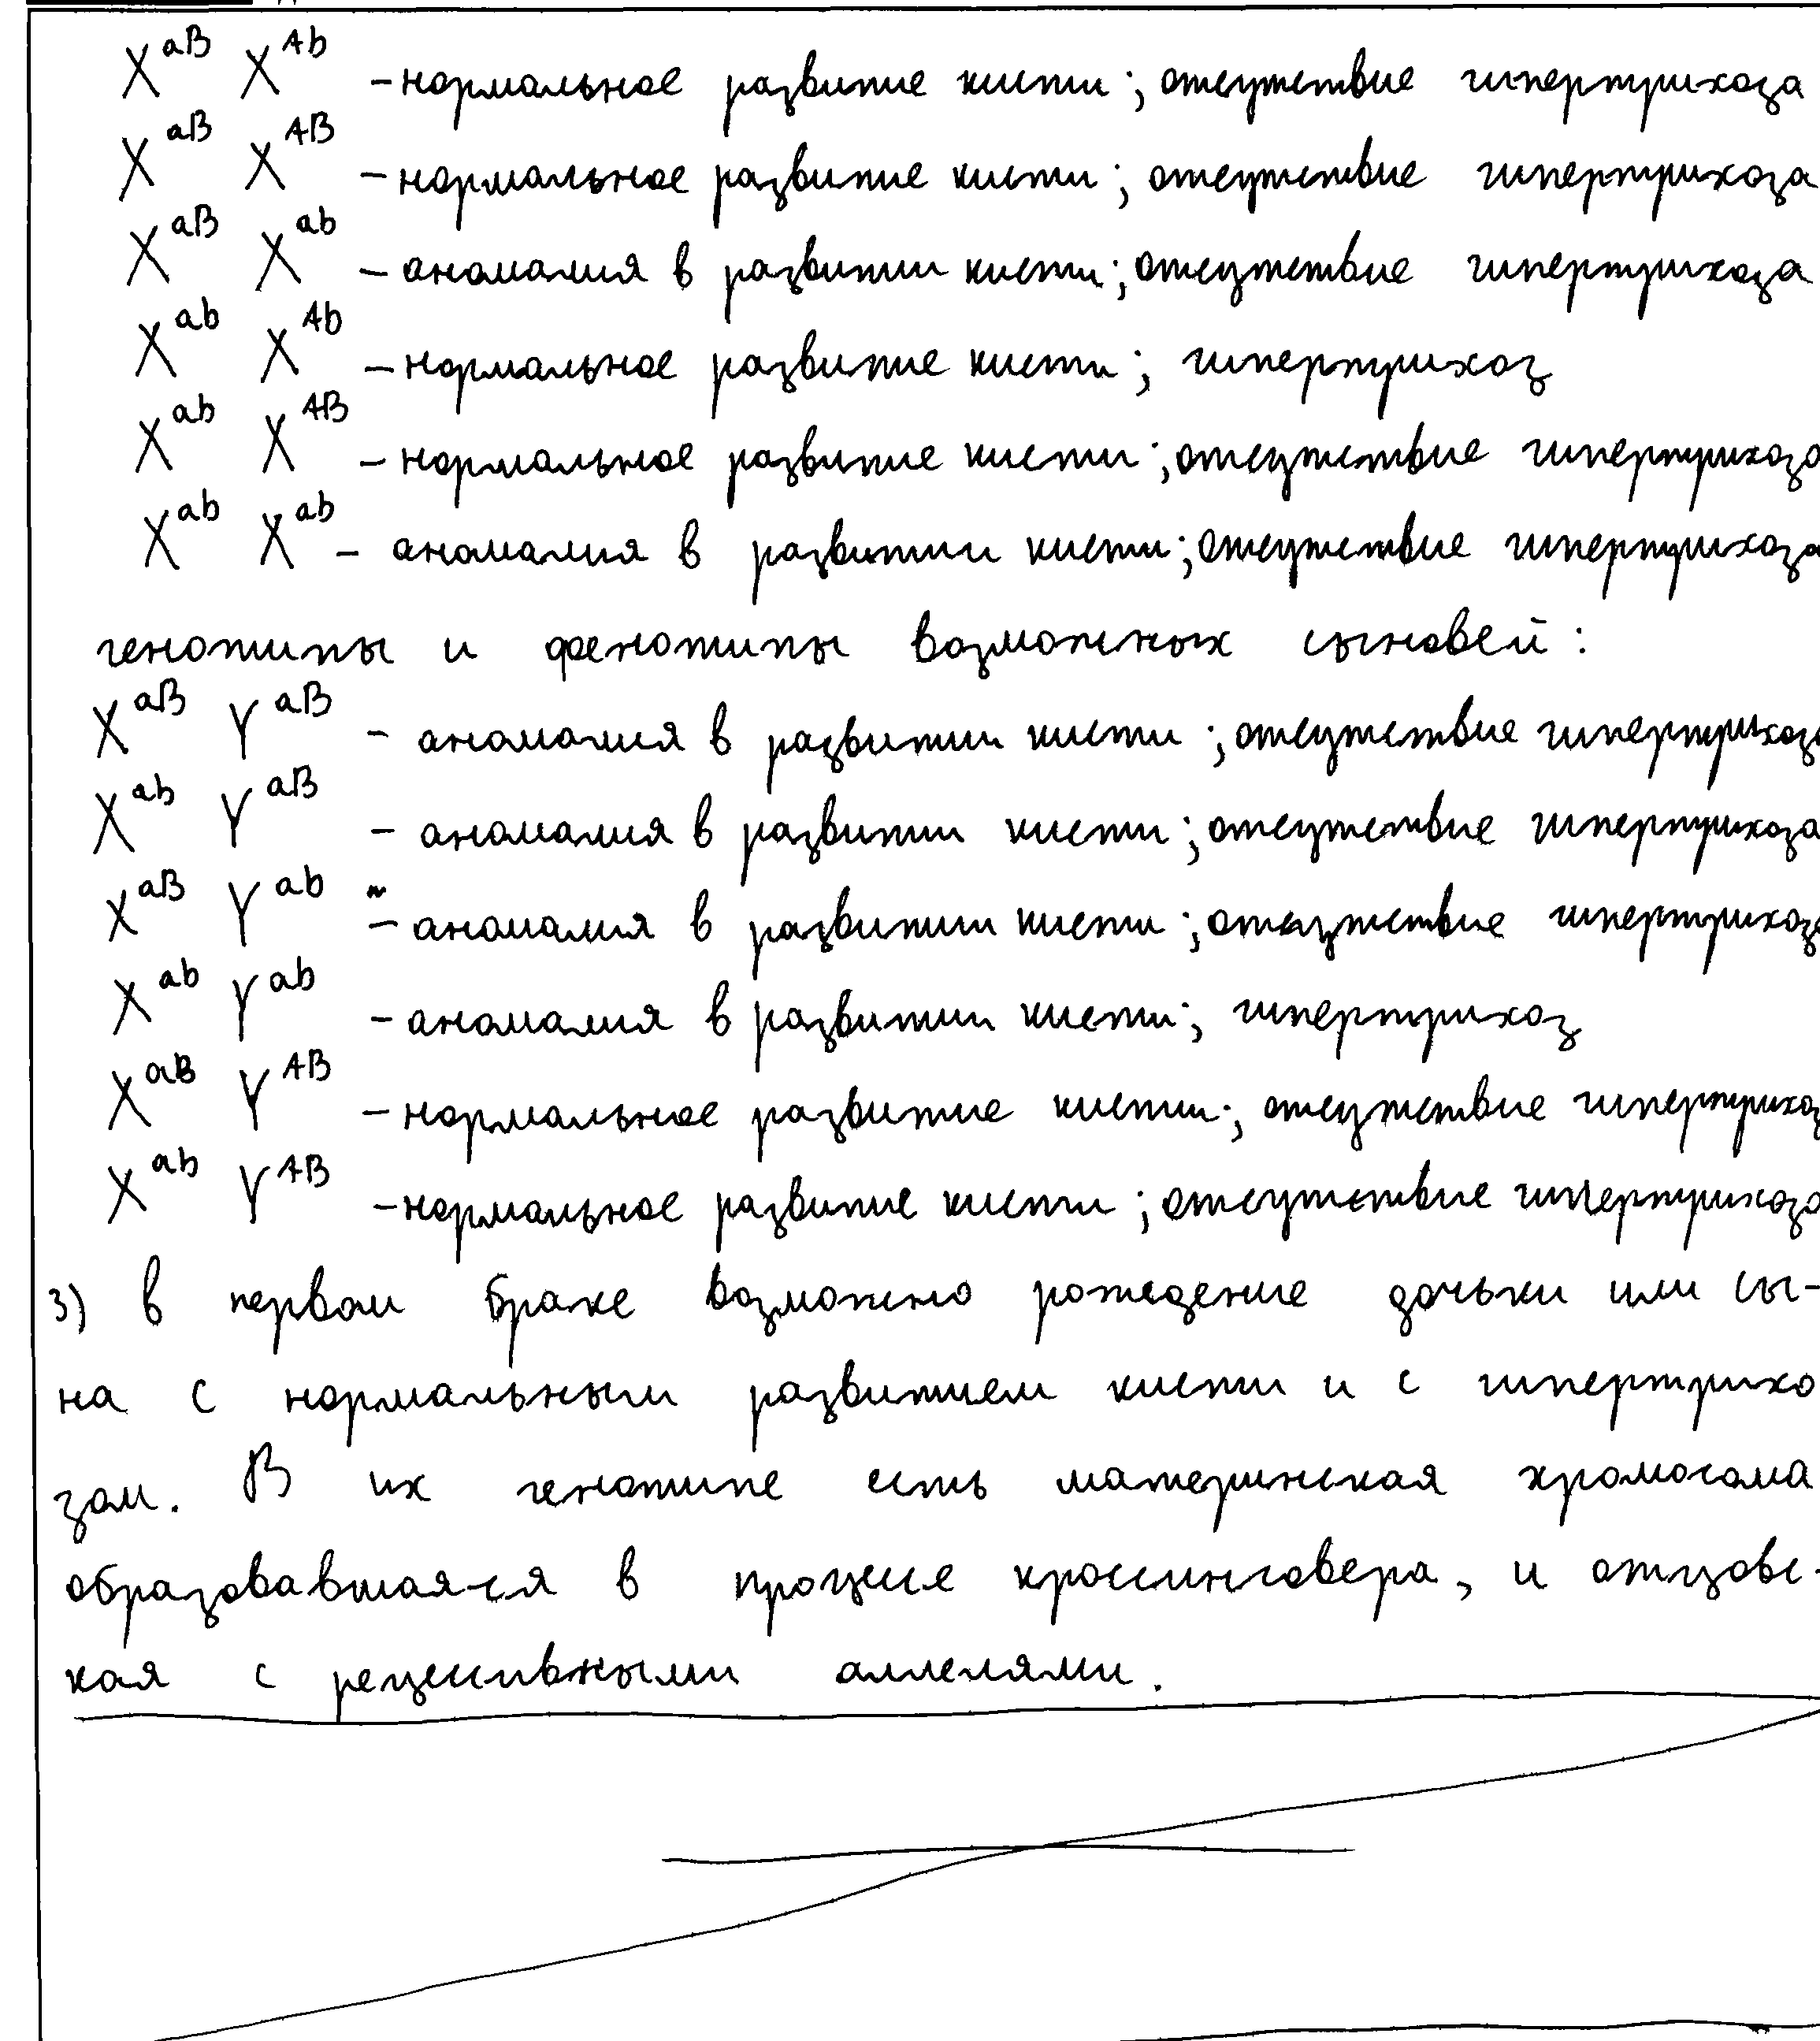 X^aB X^Ab – нормальное развитие кисти; отсутствие гипертрихоза
X^aB X^AB – нормальное развитие кисти; отсутствие гипертрихоза
X^aB X^ab – аномалия в развитии кисти; отсутствие гипертрихоза
X^ab X^Ab – нормальное развитие кисти; гипертрихоз
X^ab X^AB – нормальное развитие кисти; отсутствие гипертрихоза
X^ab X^ab – аномалия в развитии кисти; отсутствие гипертрихоза
генотипы и фенотипы возможных сыновей:
X^aB Y^aB – аномалия в развитии кисти; отсутствие гипертрихоза
X^ab Y^aB – аномалия в развитии кисти; отсутствие гипертрихоза
X^aB Y^ab – аномалия в развитии кисти; отсутствие гипертрихоза
X^ab Y^ab – аномалия в развитии кисти; гипертрихоз
X^aB Y^AB – нормальное развитие кисти; отсутствие гипертрихоз
X^ab Y^AB – нормальное развитие кисти; отсутствие гипертрихоза
3) в первом браке возможно рождение дочьки или сы-
на с нормальным развитием кисти и с гипертрихо
зом. В их генотипе есть материнская хромосома
образовавшаяся в процесе кроссинговера, и отцовс-
кая с рецессивными аллелями.